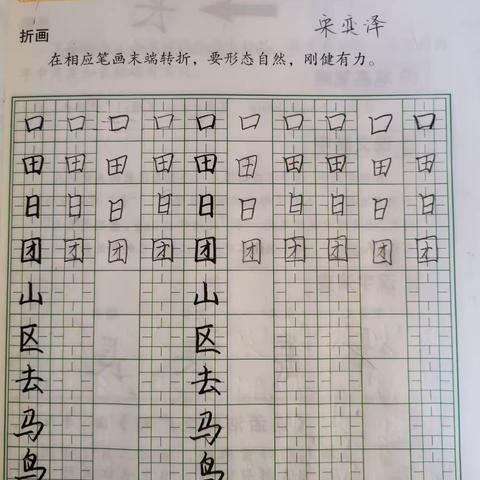 宋奕泽
折画
在相应笔画末端转折，要形态自然，刚健有力。
口口口口口口口口口口
田田田田田田田田田田
日日日日日日日日日日
团团团团团团团团团团
山山
区区
去去
马马
鸟鸟